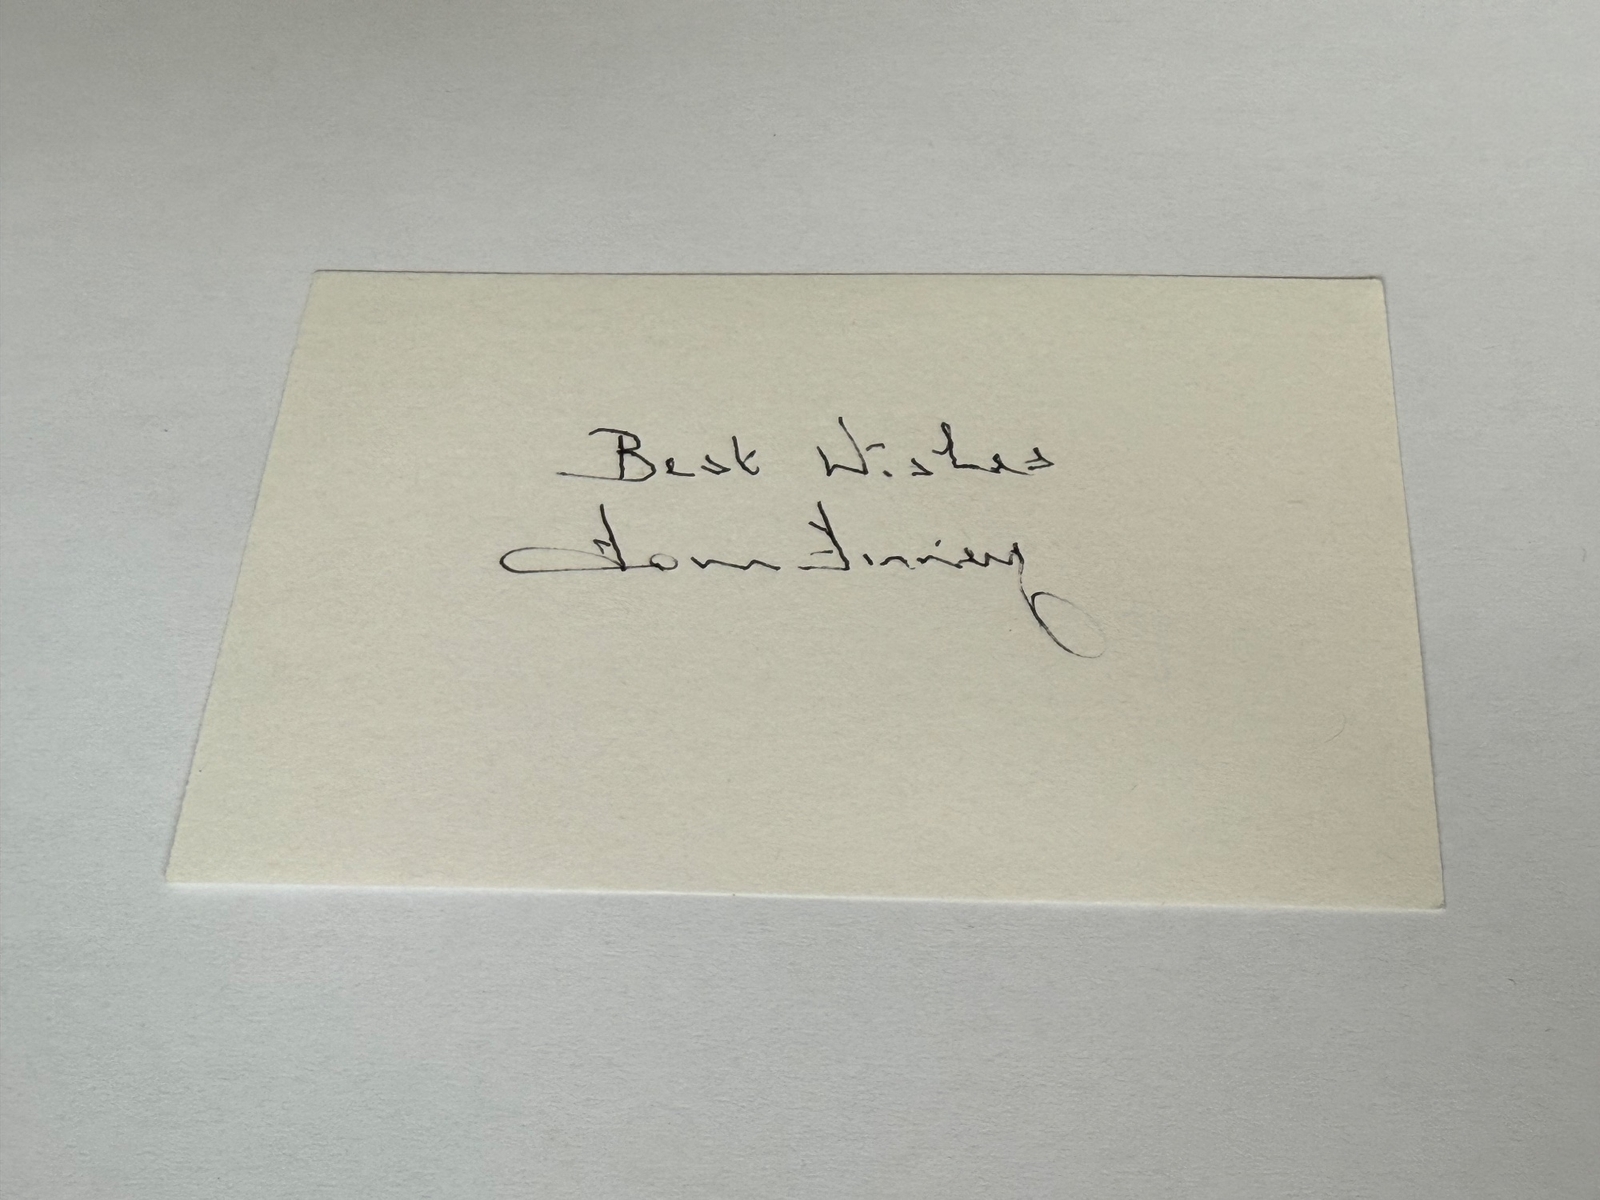 Best Wishes
Tom Finney